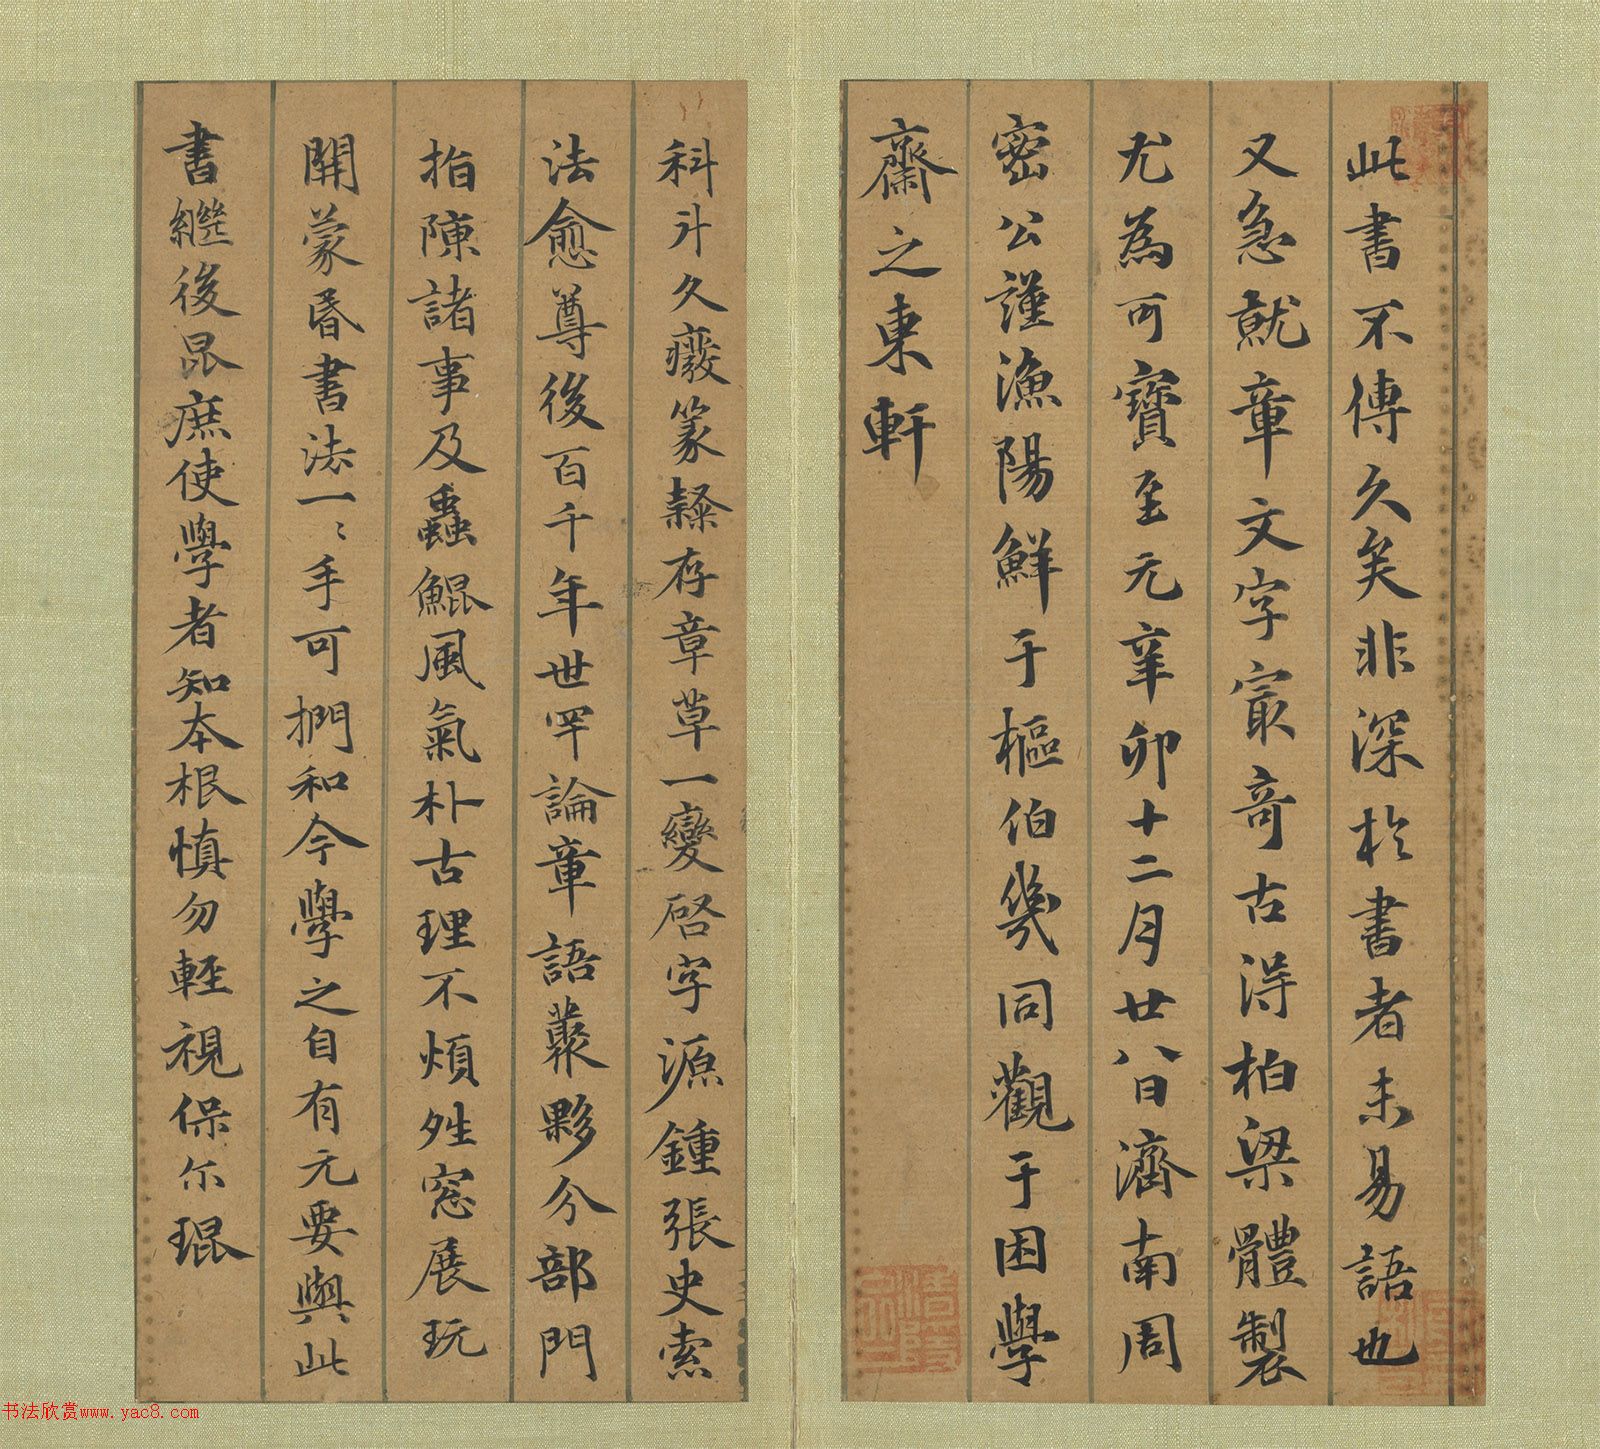 此書不傳久矣非深於書者未易語也
又急就章文字冣奇古得柏梁體製
尤為可寶至元辛卯十二月廿八日濟南周
密公謹漁陽鮮于樞伯幾同觀于困學
齋之東軒
科斗久癈篆隸存章草一變啓字源鍾張史索
法愈尊後百千年世罕論章語叢夥分部門
指陳諸事及蟲鯤風氣朴古理不煩姓窓展玩
開蒙昏書法一〻手可捫和今學之自有元要與此
書繼後昆庶使學者知本根慎勿輕視保尓琨
书法欣赏www.yac8.com